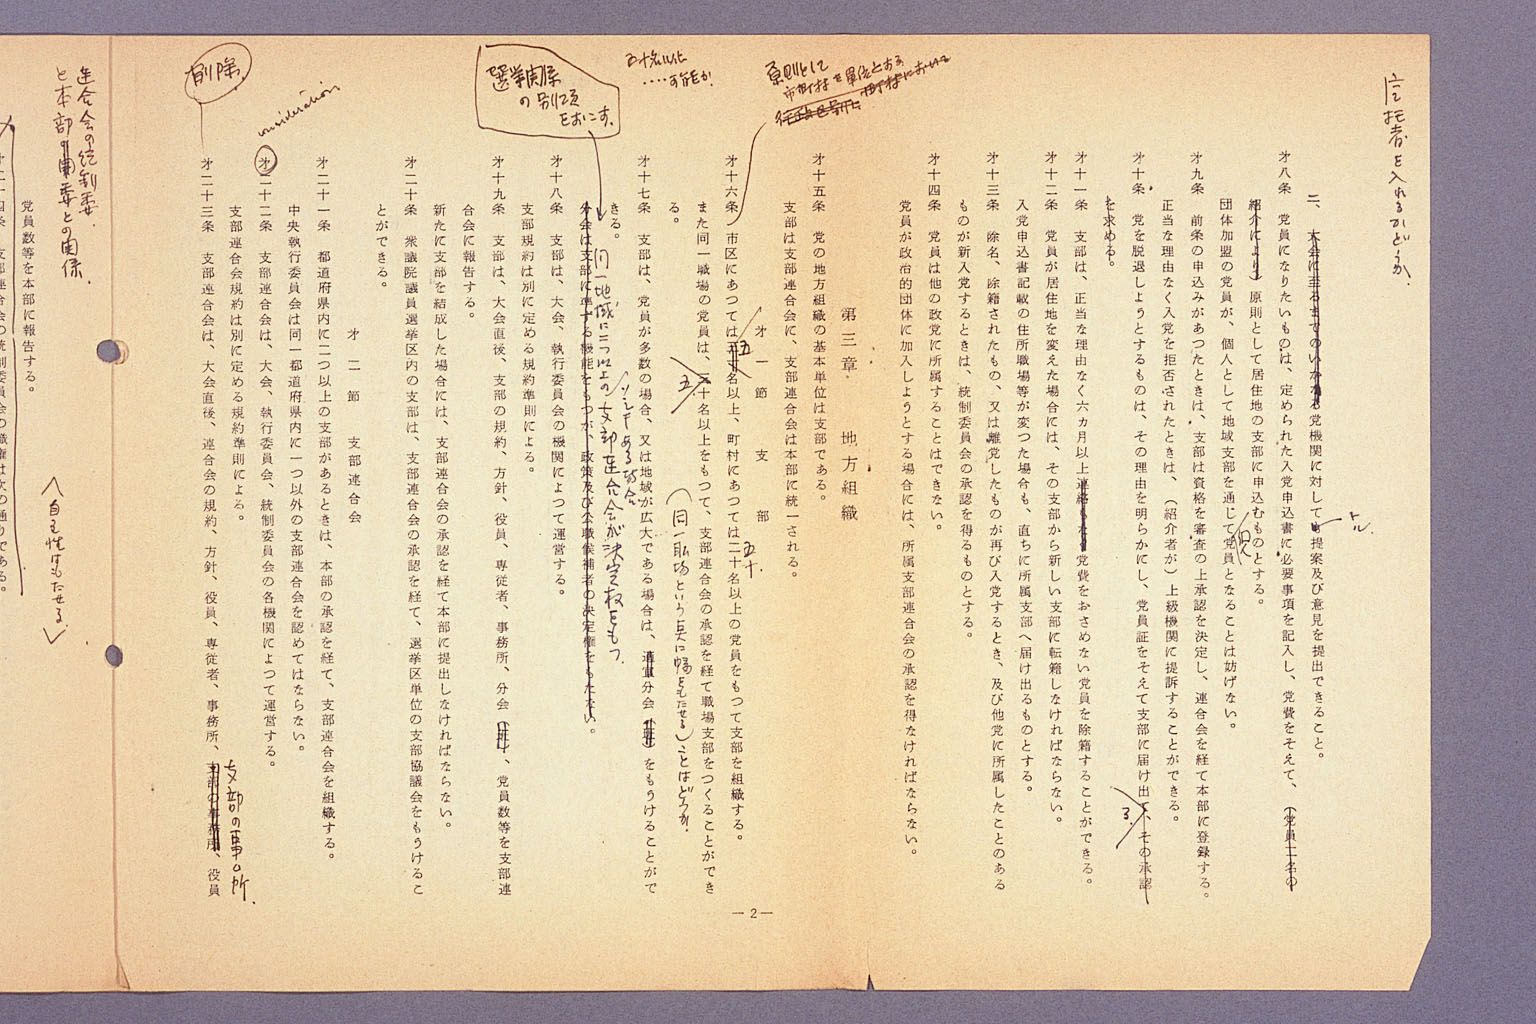 信託者を入れるかどうか.
二、大会に至るまでのいかなる党機関に対しても提案及び意見を提出できること。
トル.
才八条　党員になりたいものは、定められた入党申込書に必要事項を記入し、党費をそえて、（党員二名の
紹介により）原則として居住地の支部に申込むものとする。
団体加盟の党員が、個人として地域支部を通じて党員となることは妨げない。
個人
才九条　前条の申込みがあつたときは、支部は資格を審査の上承認を決定し、連合会を経て本部に登録する。
正当な理由なく入党を拒否されたときは、（紹介者が）上級機関に提訴することができる。
才十条　党を脱退しようとするものは、その理由を明らかにし、党員証をそえて支部に届け出て、その承認
を求める。
る.
才十一条　支部は、正当な理由なく六カ月以上連絡もなく党費をおさめない党員を除籍することができる。
才十二条　党員が居住地を変えた場合には、その支部から新しい支部に転籍しなければならない。
入党申込書記載の住所職場等が変つた場合も、直ちに所属支部へ届け出るものとする。
才十三条　除名、除籍されたもの、又は離党したものが再び入党するとき、及び他党に所属したことのある
ものが新入党するときは、統制委員会の承認を得るものとする。
才十四条　党員は他の政党に所属することはできない。
党員が政治的団体に加入しようとする場合には、所属支部連合会の承認を得なければならない。
第三章　地方組織
才十五条　党の地方組織の基本単位は支部である。
支部は支部連合会に、支部連合会は本部に統一される。
才一節　支部
原則として
市町村を単位とする
町村においては
才十六条　市区にあつては五十名以上、町村にあつては二十名以上の党員をもつて支部を組織する。
五
五十.
また同一職場の党員は、三十名以上をもつて、支部連合会の承認を経て職場支部をつくることができ
る。
五
（同一職場という点に幅をもたせる）ことはどうか.
五十名以上
‥‥可能か.
才十七条　支部は、党員が多数の場合、又は地域が広大である場合は、適宜分会（班）をもうけることがで
きる。
ソレデある場合
同一地域に二つ以上の支部連合会が決定権をもつ.
分会は支部に準ずる機能をもつが、政策及び公職候補者の決定権をもたない。
選挙関係
の別項
をおこす.
才十八条　支部は、大会、執行委員会の機関によつて運営する。
支部規約は別に定める規約準則による。
才十九条　支部は、大会直後、支部の規約、方針、役員、専従者、事務所、分会（班）、党員数等を支部連
合会に報告する。
新たに支部を結成した場合には、支部連合会の承認を経て本部に提出しなければならない。
才二十条　衆議院議員選挙区内の支部は、支部連合会の承認を経て、選挙区単位の支部協議会をもうけるこ
とができる。
才二節　支部連合会
才二十一条　都道府県内に二つ以上の支部があるときは、本部の承認を経て、支部連合会を組織する。
中央執行委員会は同一都道府県内に一つ以外の支部連合会を認めてはならない。
consideration
才二十二条　支部連合会は、大会、執行委員会、統制委員会の各機関によつて運営する。
支部連合会規約は別に定める規約準則による。
削除.
才二十三条　支部連合会は、大会直後、連合会の規約、方針、役員、専従者、事務所、支部の事務所、役員
支部の事ム所.
― 2 ―
連合会の統制委.
と本部の統委との関係.
〈自主性はもたせる〉
党員数等を本部に報告する。
才二十四条　支部連合会の統制委員会の職権は次の通りである。